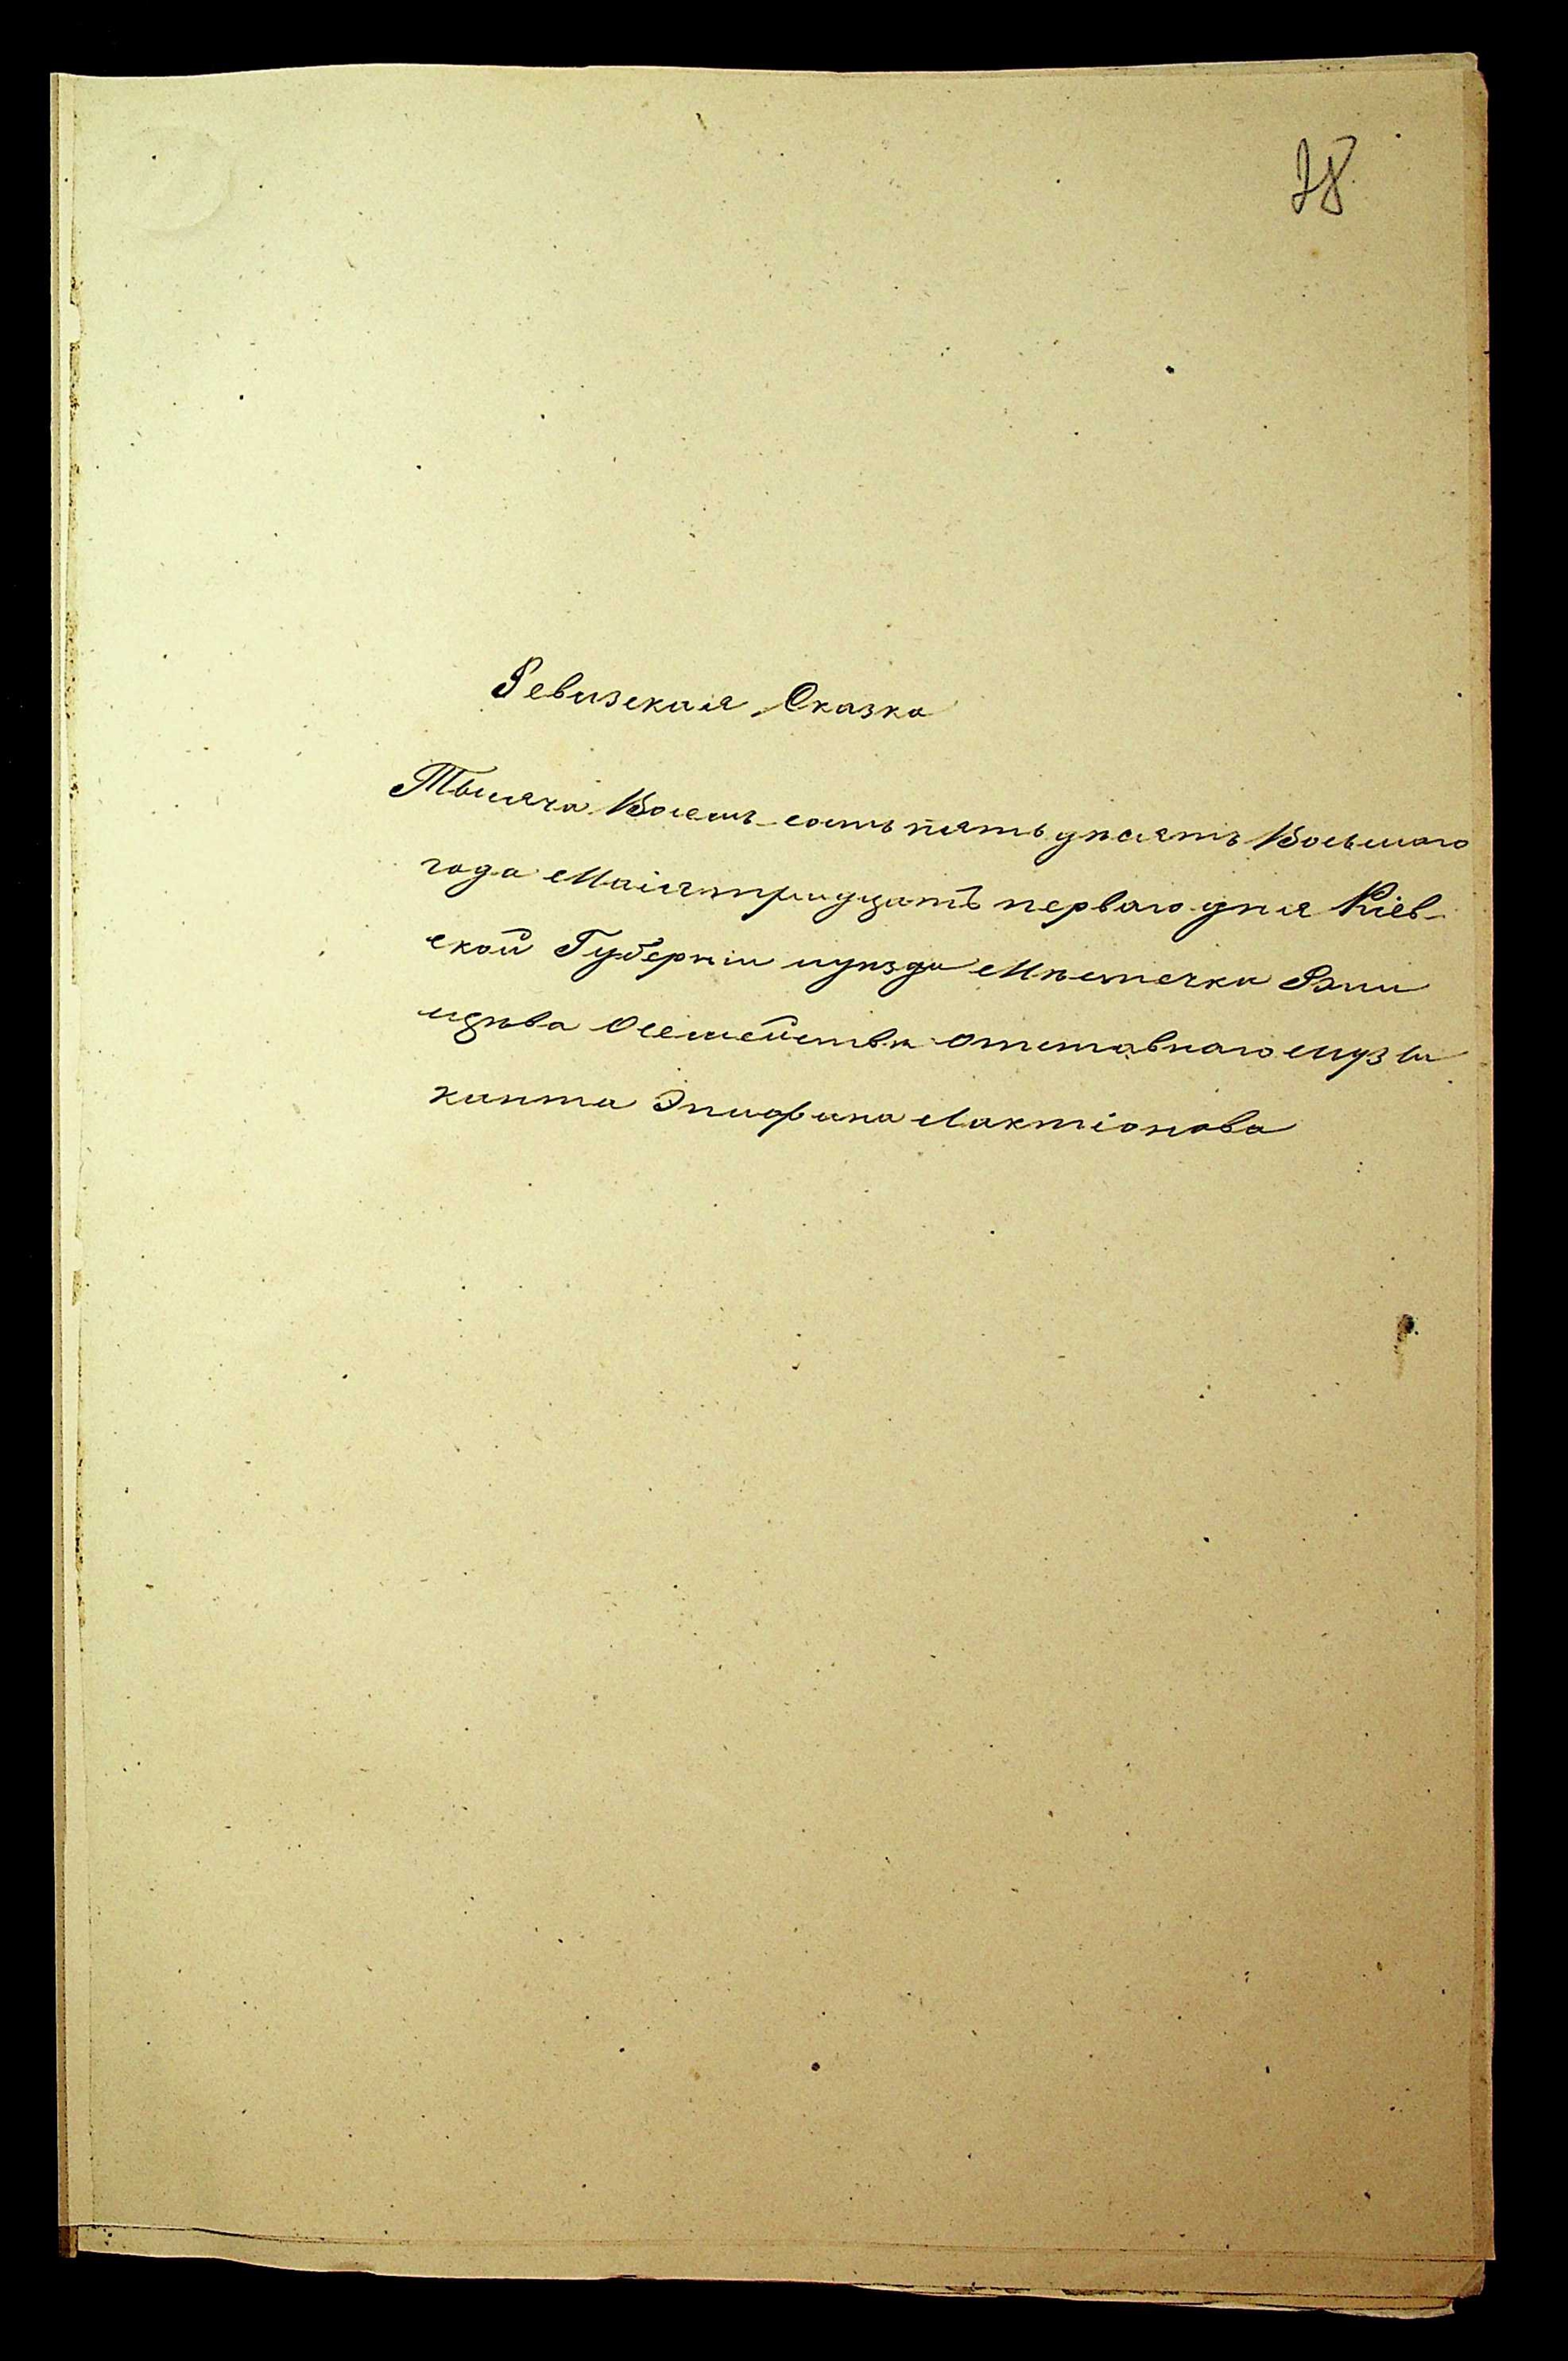 28
Ревизская Сказка
Тысяча Восемь сотъ пять дѣсятъ Восьмаго
года Маія тридцатъ перваго дня Кіев-
ской Губерніи иуѣзда Мѣстечка Ржи
щѣва Осемействѣ отставнаго музы
канта Эпифана Лактіонова